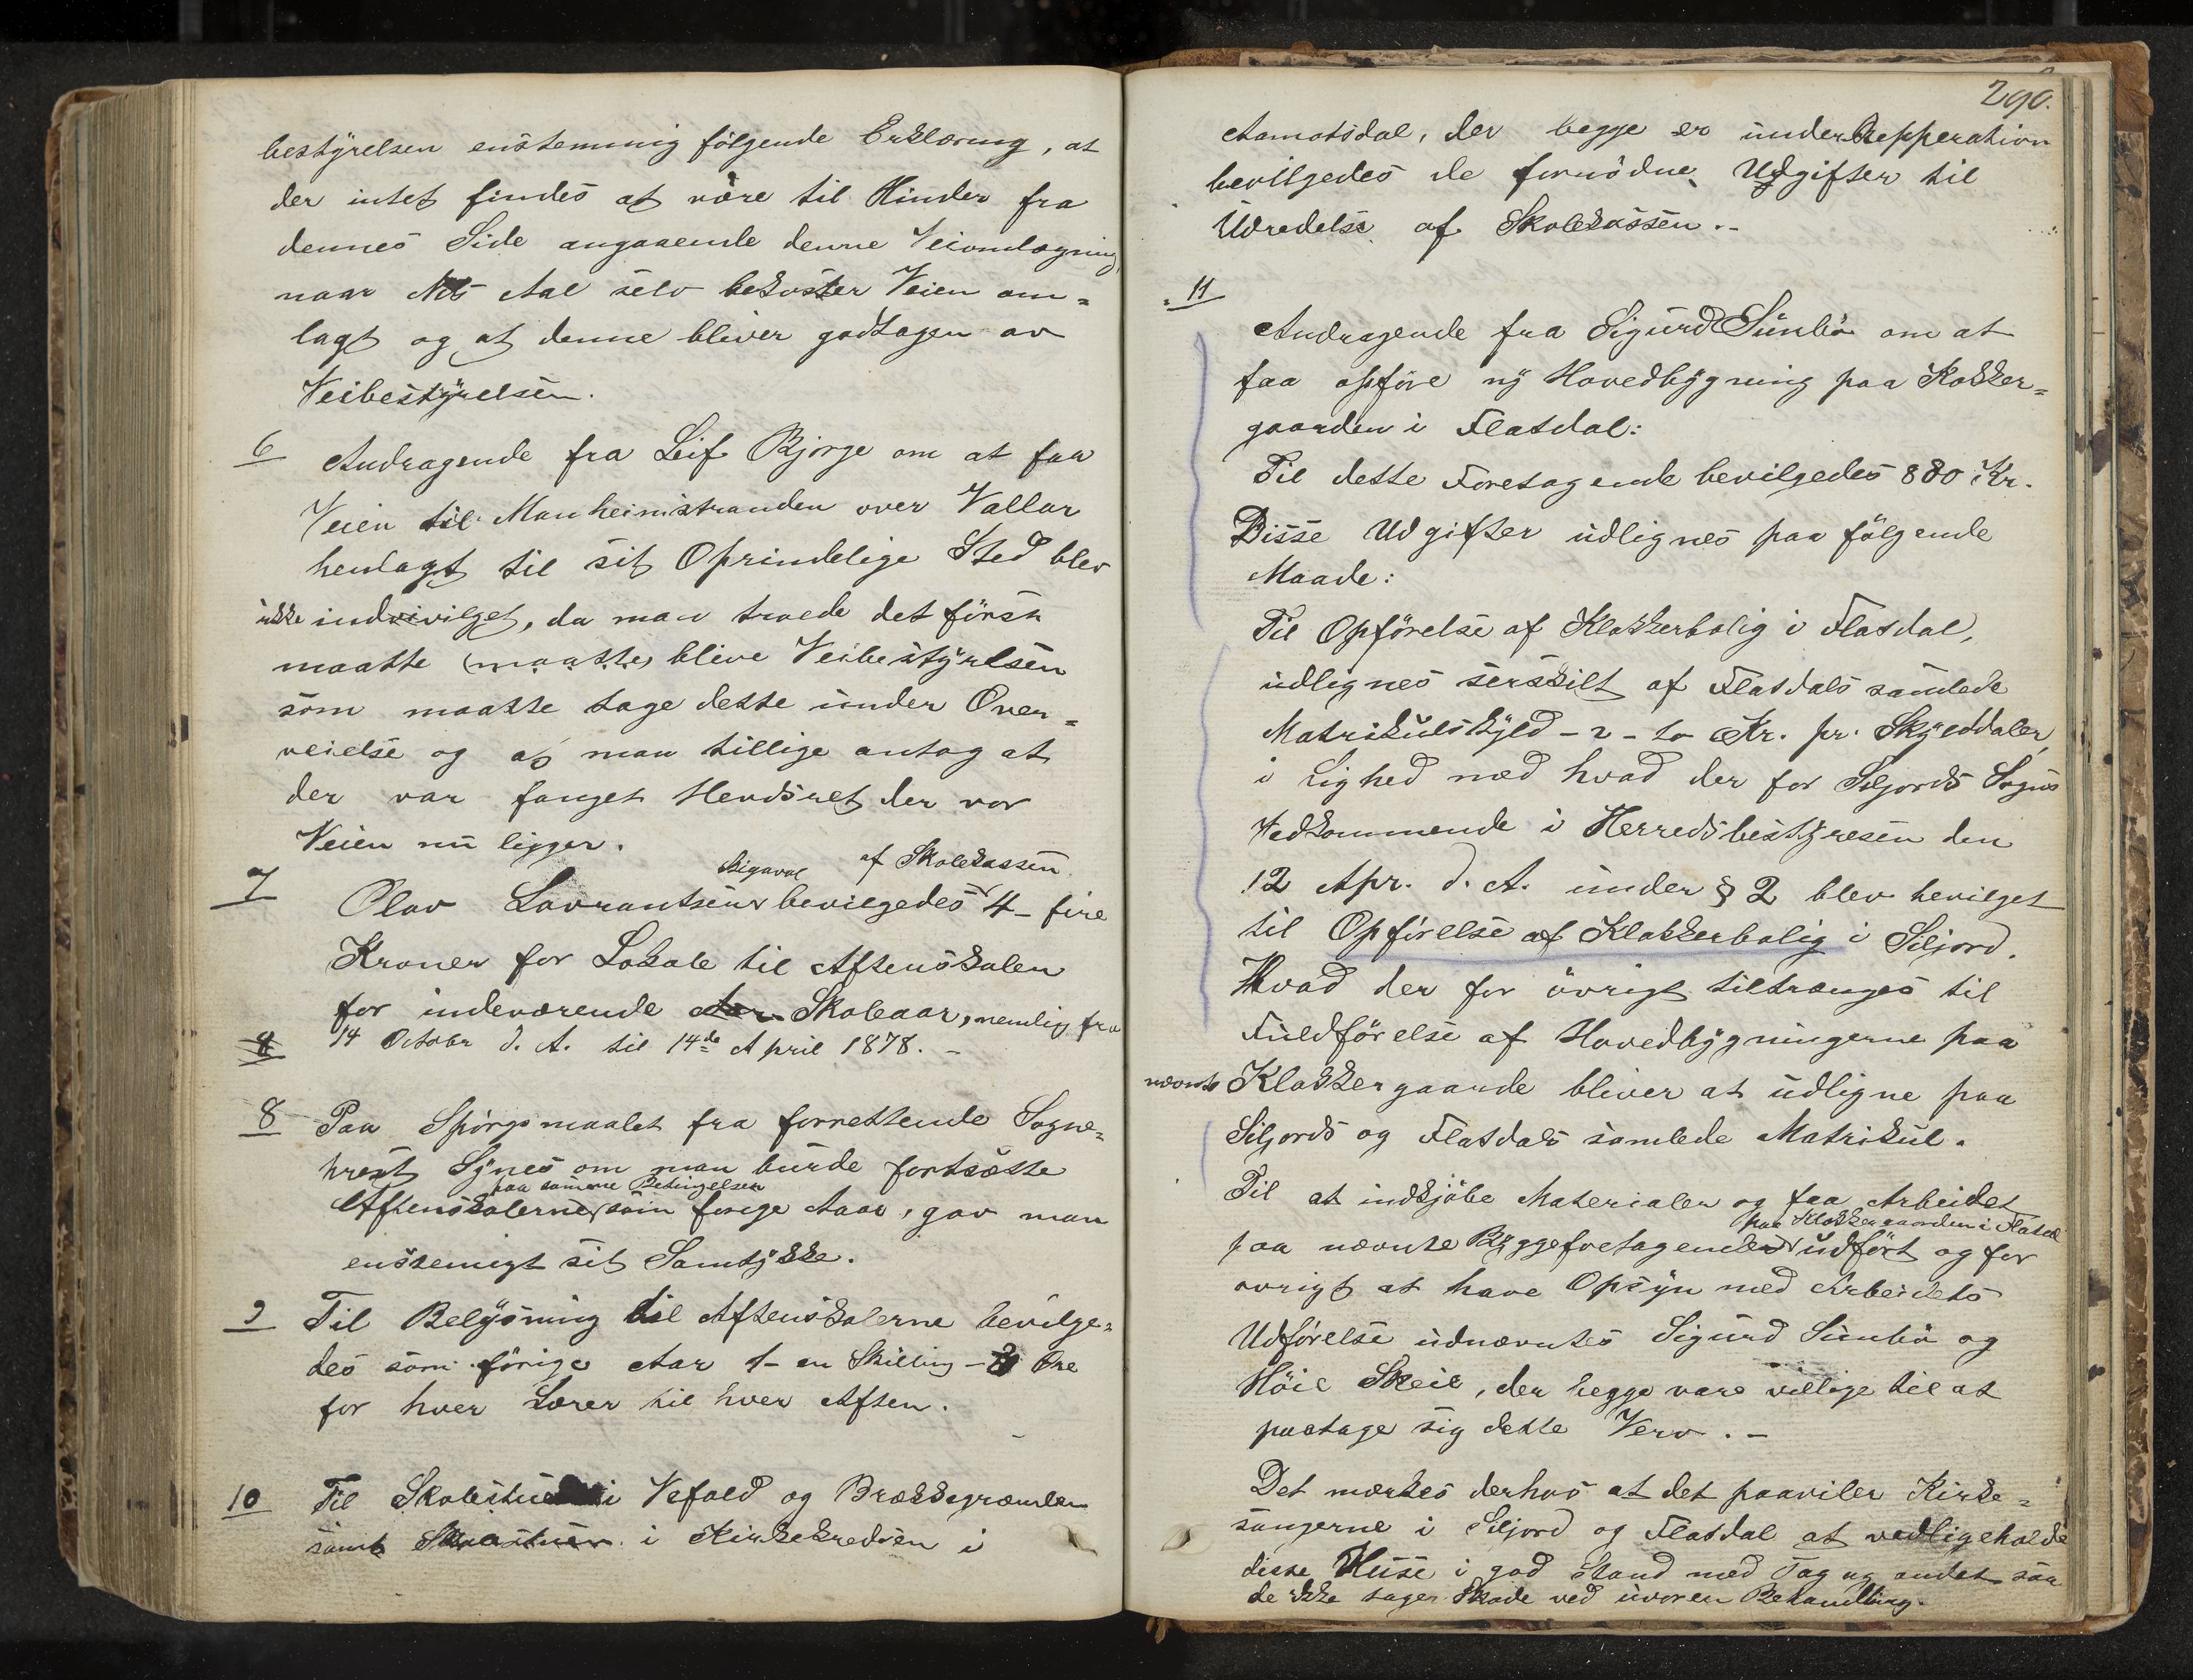 bestÿrelsen enstemmig følgende Erklæring, at
der intet findes at være til Hinder fra
dennes Side angaaende denne Veiomlægning
naar Nils Aal selv bekoster Veien om=
lagt og at denne bliver godtagen av
Veibestÿrelsen.
6 Andragende fra Leif Bjørge om at faa
Veien til Manheimstranden over Vallar
henlagt til sit Oprindelige Sted blev
ikke indvivilget, da man troede det først
maatte (maatte) blive Veibestÿrelsen
som maatte tage dette under Over=
veielse og at man tillige antog at
der var fanget Hevdsret der vor
Veien nu ligger.
Sigaval af Skolekassen
7 Olav Lavrantsen bevilgedes 4 - fire
Kroner for Lokale til Aftenskolen
for indeværende Aar Skoleaar, nemlig fra
8 14 Octobr d. A. til 14de April 1878. -
8 Paa Spørgsmaalet fra forrettende Sogne=
prest Sÿnes om man burde fortsætte
paa samme Betingelser
Aftenskolerne som forige Aar, gav man
enstemigt sit Samtÿkke.
9 Til Belÿsning til Aftenskolerne bevilge=
des som forige Aar 1 - en Skilling - 3 Øre
for hver Lærer til hver Aften.
10 Til Skolestuer i Vefald og Brækkegrænden
samt Skolestuer i Kirkekredsen i
290.
Aamotsdal, der begge er under Repperation
bevilgedes de fornødne Udgifter til
Udredelse af Skolekassen. -
11
Andragende fra Sigurd Sünbø om at
faa opføre nÿ Hovedbÿgning paa Klokker=
gaarden i Flatdal:
Til dette Foretagende bevilgedes 880 Kr.
Disse Udgifter udlignes paa følgende
Maade:
Til Opførelse af Klokkerbolig i Flatdal,
udlignes særskilt af Flatdals samlede
Matrikulskÿld - 2 - to Kr. pr. Skÿlddaler
i Lighed med hvad der for Siljords Sogns
Vedkommende i Herredsbestÿresen den
12 Apr. d. A. under § 2 blev bevilget
til Opførelse af Klokkerbolig i Siljord.
Hvad der for øvrigt tiltrænges til
Fuldførelse af Hovedbÿgningerne paa
nævnte Klokkergaarde bliver at udligne paa
Siljords og Flatdals samlede Matrikul.
Til at indkjøbe Materialer og faa Arbeidet
paa Klokkergaarden i Flatdal
paa nævnte Bÿggeforetagende udført og for
øvrigt at have Opsÿn med Arbeidets
Udførelse udnævntes Sigurd Sünbø og
Høie Skeie, der begge vare villige til at
paatage sig dette Verv. -
Det mærkes derhos at det paaviler Kirke=
sangerne i Siljord og Flatdal at vedligeholde
disse Huse i god Stand med Tag og andet saa
de ikke tager Skade ved uvoren Behandling.